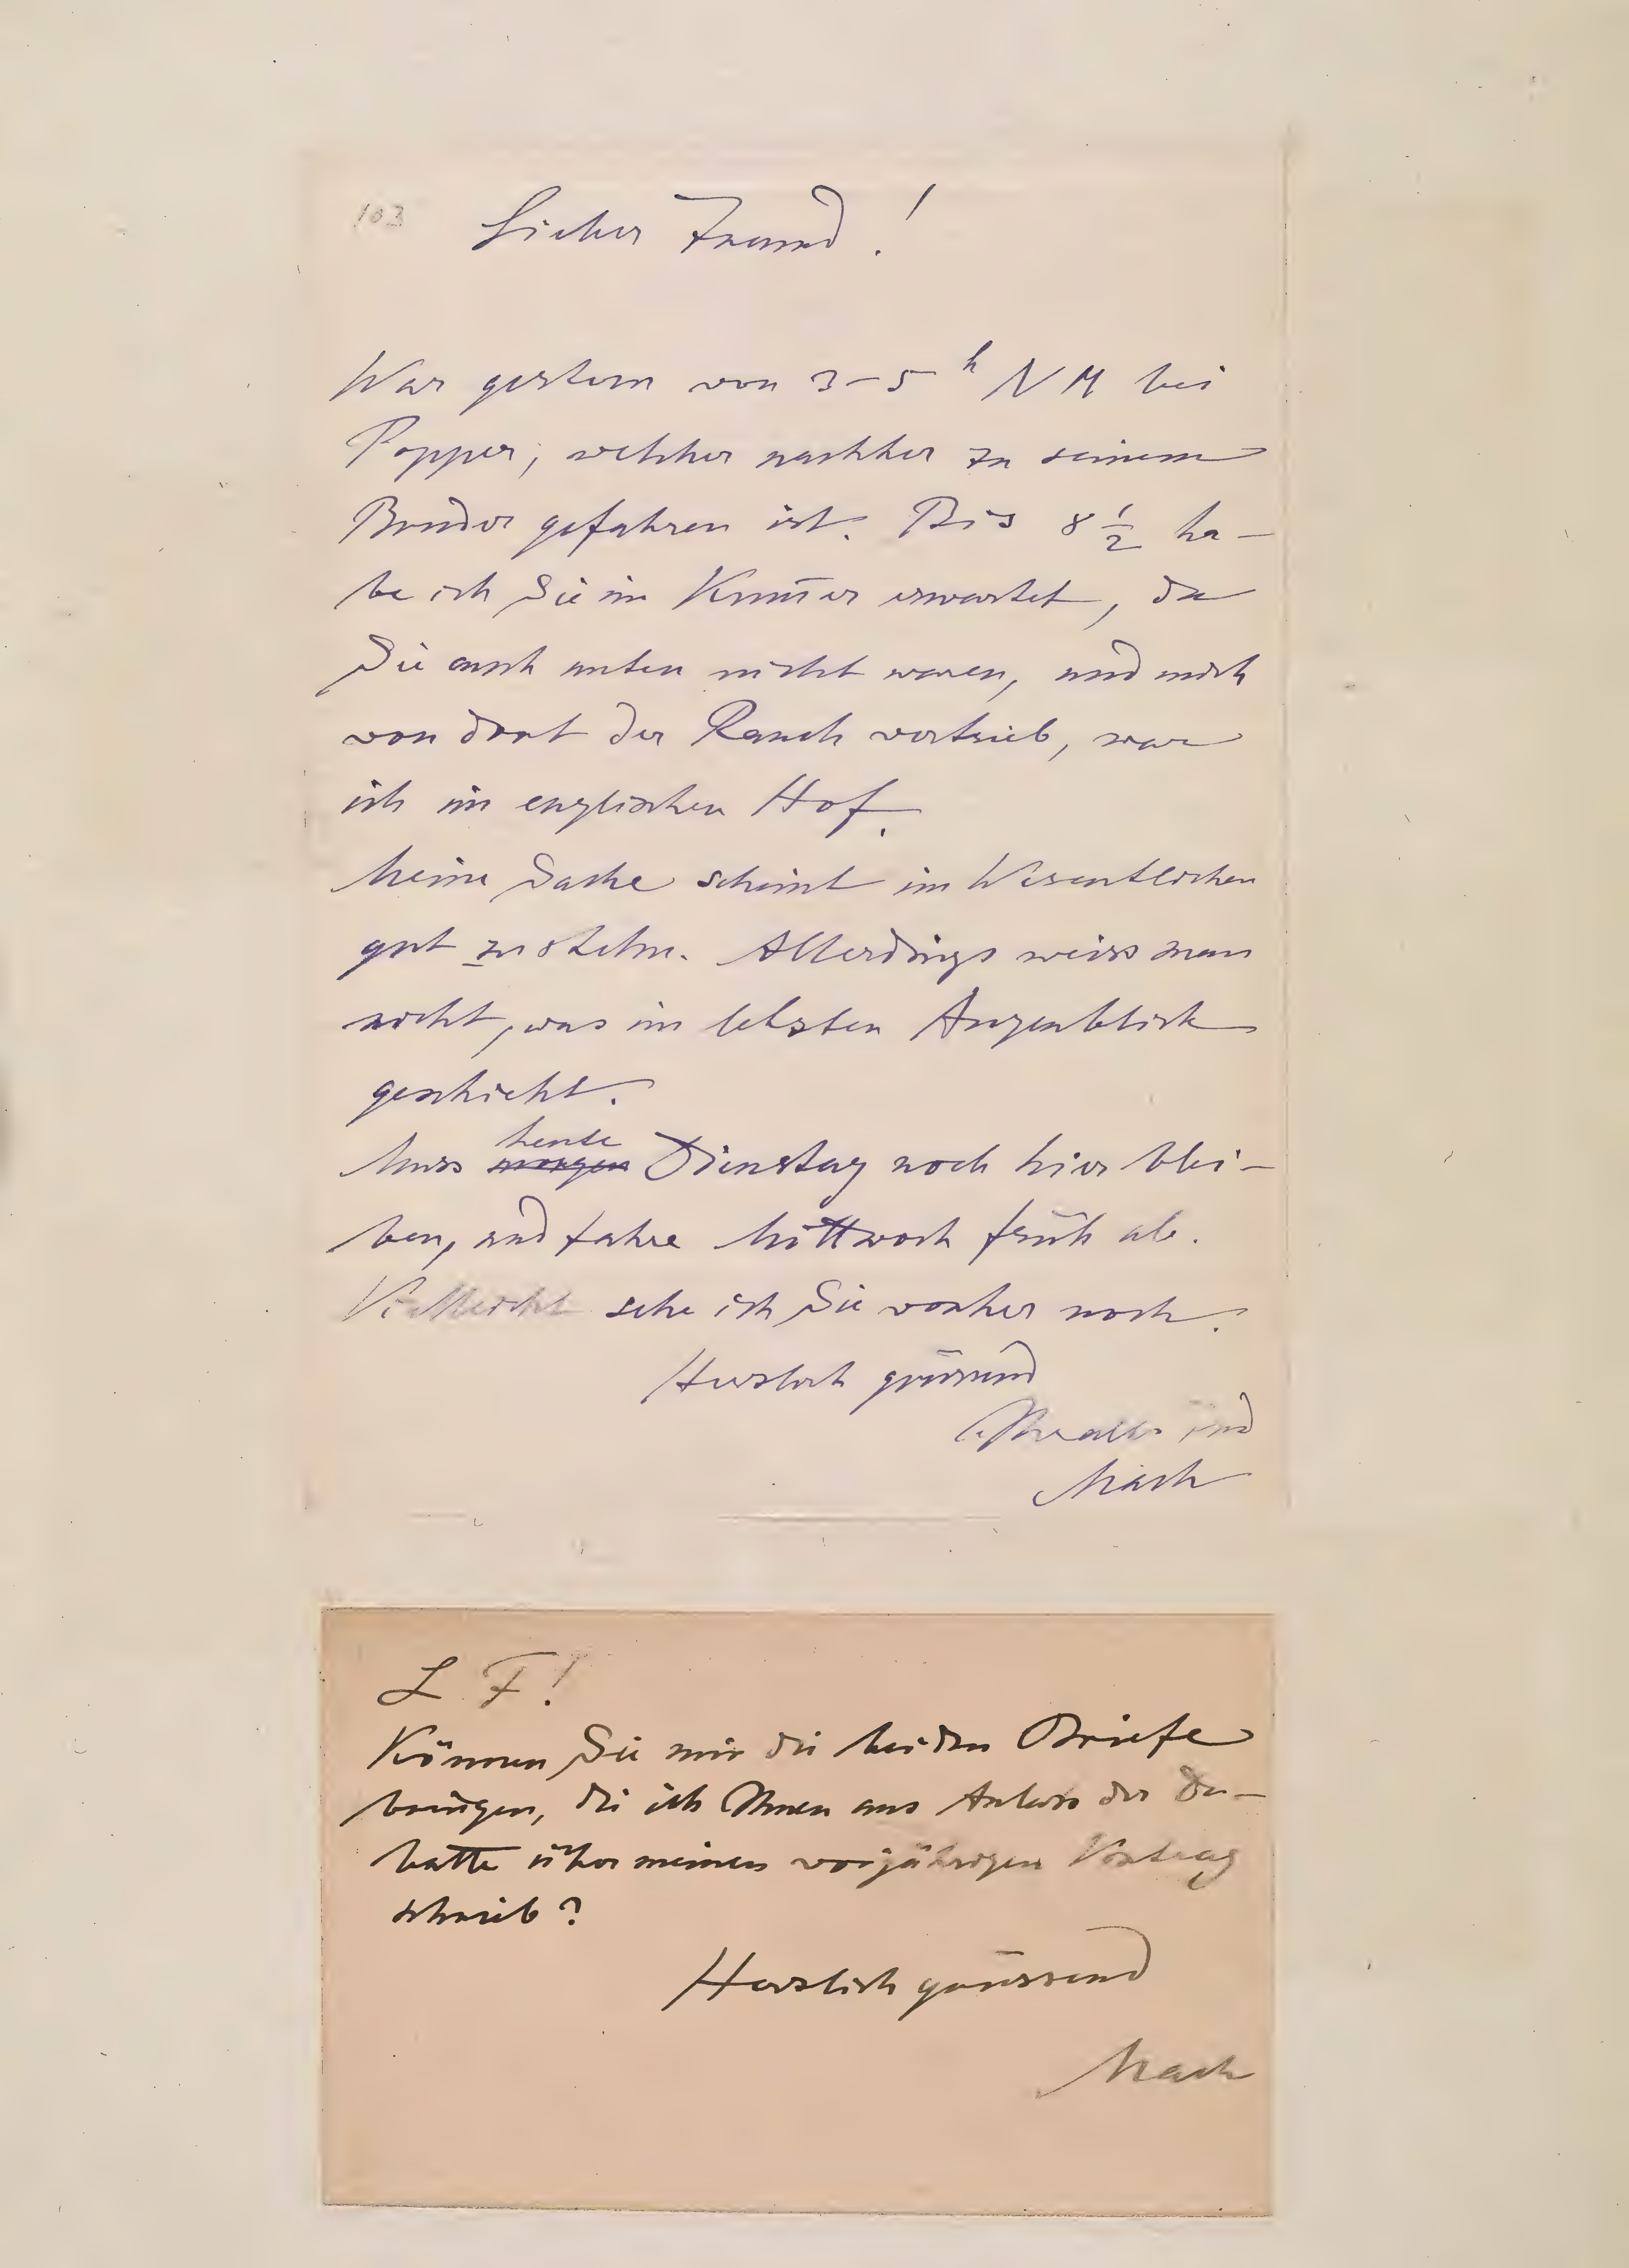 103
Lieber Freund!
War gestern von 3-5 h NM bei
Popper, welcher nachher zu seinem
Bruder gefahren ist. Bis 8 1/2 ha-
be ich Sie im erwartet, da
Sie auch unten nicht waren, und mich
von dort der Rauch vertrieb, war
ich im englischen Hof.
Meine Sache scheint im Wesentlichen
gut zu stehn. Allerdings weiss man
nicht, was im letzten Augenblick
geschieht.
Muss heute morgen Dienstag noch hier blei-
ben, und fahre Mittwoch früh ab.
Vielleicht sehe ich Sie vorher noch.
Herzlich grüssend
Mach
L F!
Können Sie mir die beiden Briefe
bringen, die ich Ihnen aus Anlass der De-
batte über meinen vorjährigen Vortrag
schrieb?
Herzlich grüssend
Mach